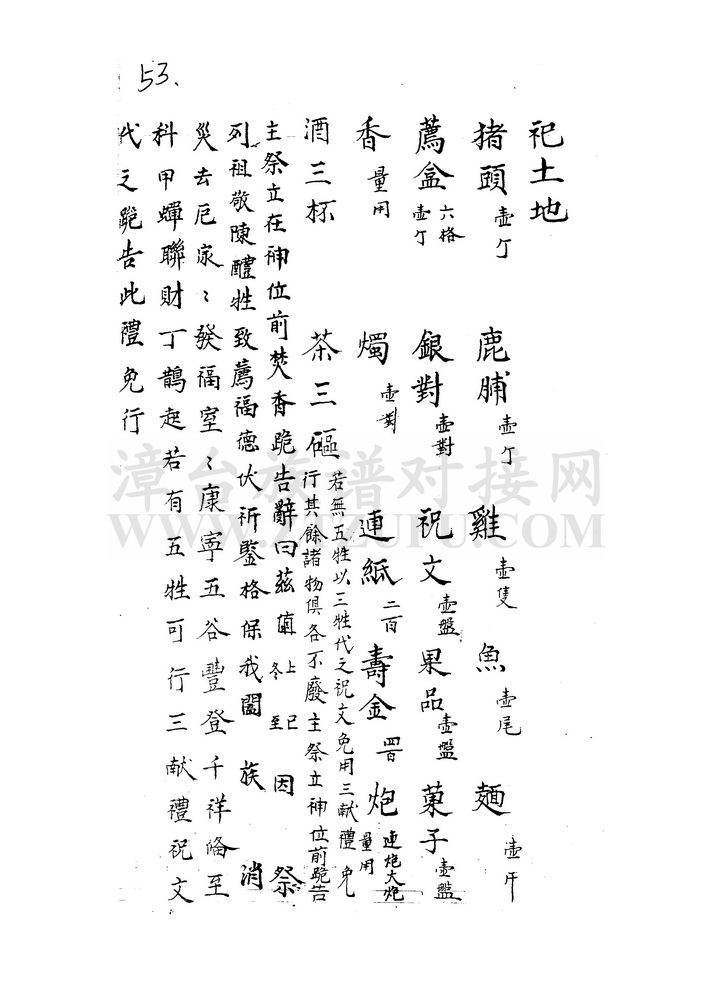 53.
祀土地
猪頭壺个 鹿脯壺个 雞壺隻 魚壺尾 麵壺斤
薦盒六格壺个 銀對壺對 祝文壺盤 果品壺盤 菓子壺盤
香量用 燭壺對 連紙二百 壽金四百 炮連炮大炮量用
酒三杯 茶三甌 若無五牲以三牲代之祝文免用三献禮免
行其餘諸物俱各不廢主祭立神位前跪告
主祭立在神位前焚香跪告辭曰茲值上巳冬至因祭
列祖敬陳醴牲致薦福德伏祈鑒格保我闔族消
災去厄家〻發福室〻康寧五谷豐登千祥偹至
科甲蟬聯財丁鵲起若有五牲可行三献禮祝文
代之跪告此禮免行
漳台族谱对接网
WWW.ZTZUPU.COM